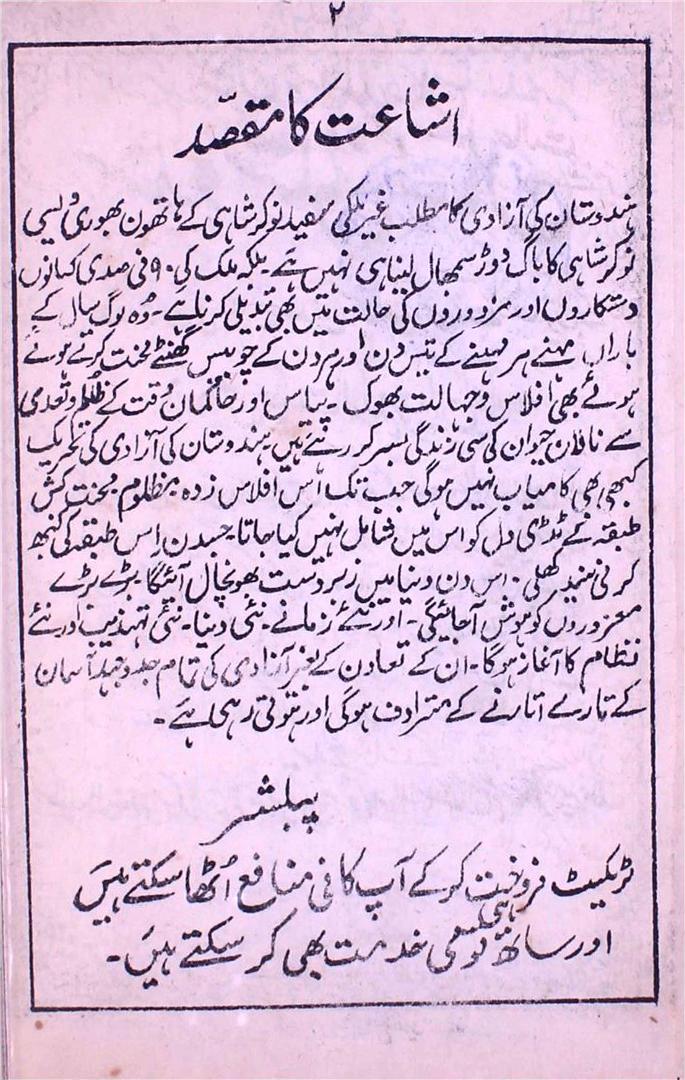 ۲
اشاعت کا مقصد
ہندوستان کی آزادی کا مطلب غیر ملکی سفید نوکرشاہی کے ہاتھوں بھوری دیسی
نوکرشاہی کا باگ دوڑ سمھال لینا ہی نہیں ہے۔ بلکہ ملک کی ۹۰ فی صدی کسانوں
دستکاروں اور مزدوروں کی حالت میں بھی تبدیلی کرنا ہے۔ وُہ لوگ سال کے
باراں مہنے ہر مہنے کے تیس دن اور ہر دن کے چوبیس گھنٹے محنت کرتے ہوئے
ہوئے بھی افلاس و جہالت بھوک۔ پیاس اور حاکمان وقت کے ظلم و تعدی
سے نالان حیوان کی سی زندگی بسر کر رہے ہیں۔ ہندوستان کی آزادی کی تحریک
کبھی بھی کامیاب نہیں ہوگی جب تک اس افلاس زدہ۔ مظلوم۔ محنت کش
طبقہ کے ٹڈی دل کو اس میں شامل نہیں کیا جاتا۔ جسدن اِس طبقہ کی کنبھ
کرنی نیند کھلی۔ اس دن دنیا میں زبردست بھونچال آئیگا۔ بڑے بڑے
مغروروں کو ہوش آجائیگی۔ اور نئے زمانے۔ نئی دنیا۔ نئی تہذیب اور نئے
نظام کا آغاز ہوگا۔ ان کے تعاون کے بغیر آزادی کی تمام جدوجہد آسمان
کے تارے اتارنے کے مترادف ہوگی اور ہوتی رہی ہے۔
پبلشر
ٹریکٹ فروخت کر کے آپ کافی منافع اُٹھا سکتے ہیں
اور ساتھ ہی قومی خدمت بھی کر سکتے ہیں۔